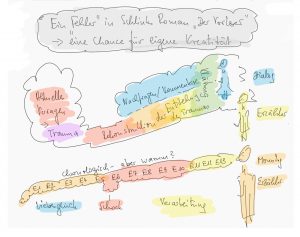 Ein Fehler in Schlinks Roman „Der Vorleser"
→ eine Chance für eigene Kreativität
Aktuelle
Trauma
Nachfragen/Kommentare
Dialog
Rekonstruktion der Entstehung
des Traumas
Erzähler
chronologisch - aber warum?
E1 E2 E3 E4 E5 E6 E7 E8 E9 E10 E11 E12 E13
Liebesglück
Schock
Verarbeitung
Erzähler